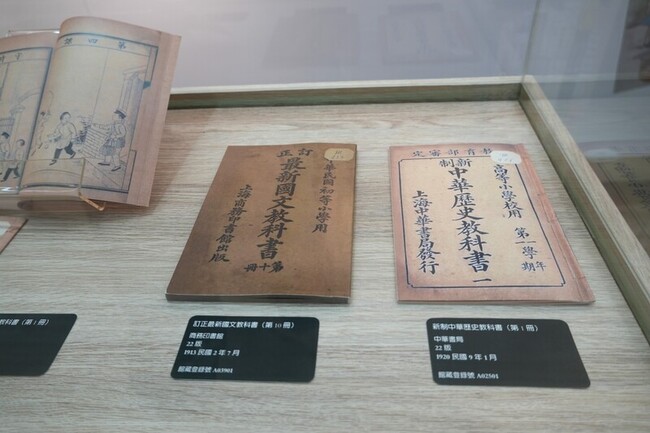 第四
教科書（第 1 冊）
訂正
最新國文教科書
中華民國初等小學用
第十冊
上海商務印書館出版
訂正最新國文教科書（第 10 冊）
商務印書館
22 版
1913 民國 2 年 7 月
館藏登錄號 A03901
教育部審定
高等小學校用
第一學年
期
新制
中華歷史教科書 一
上海中華書局發行
新制中華歷史教科書（第 1 冊）
中華書局
22 版
1920 民國 9 年 1 月
館藏登錄號 A02501